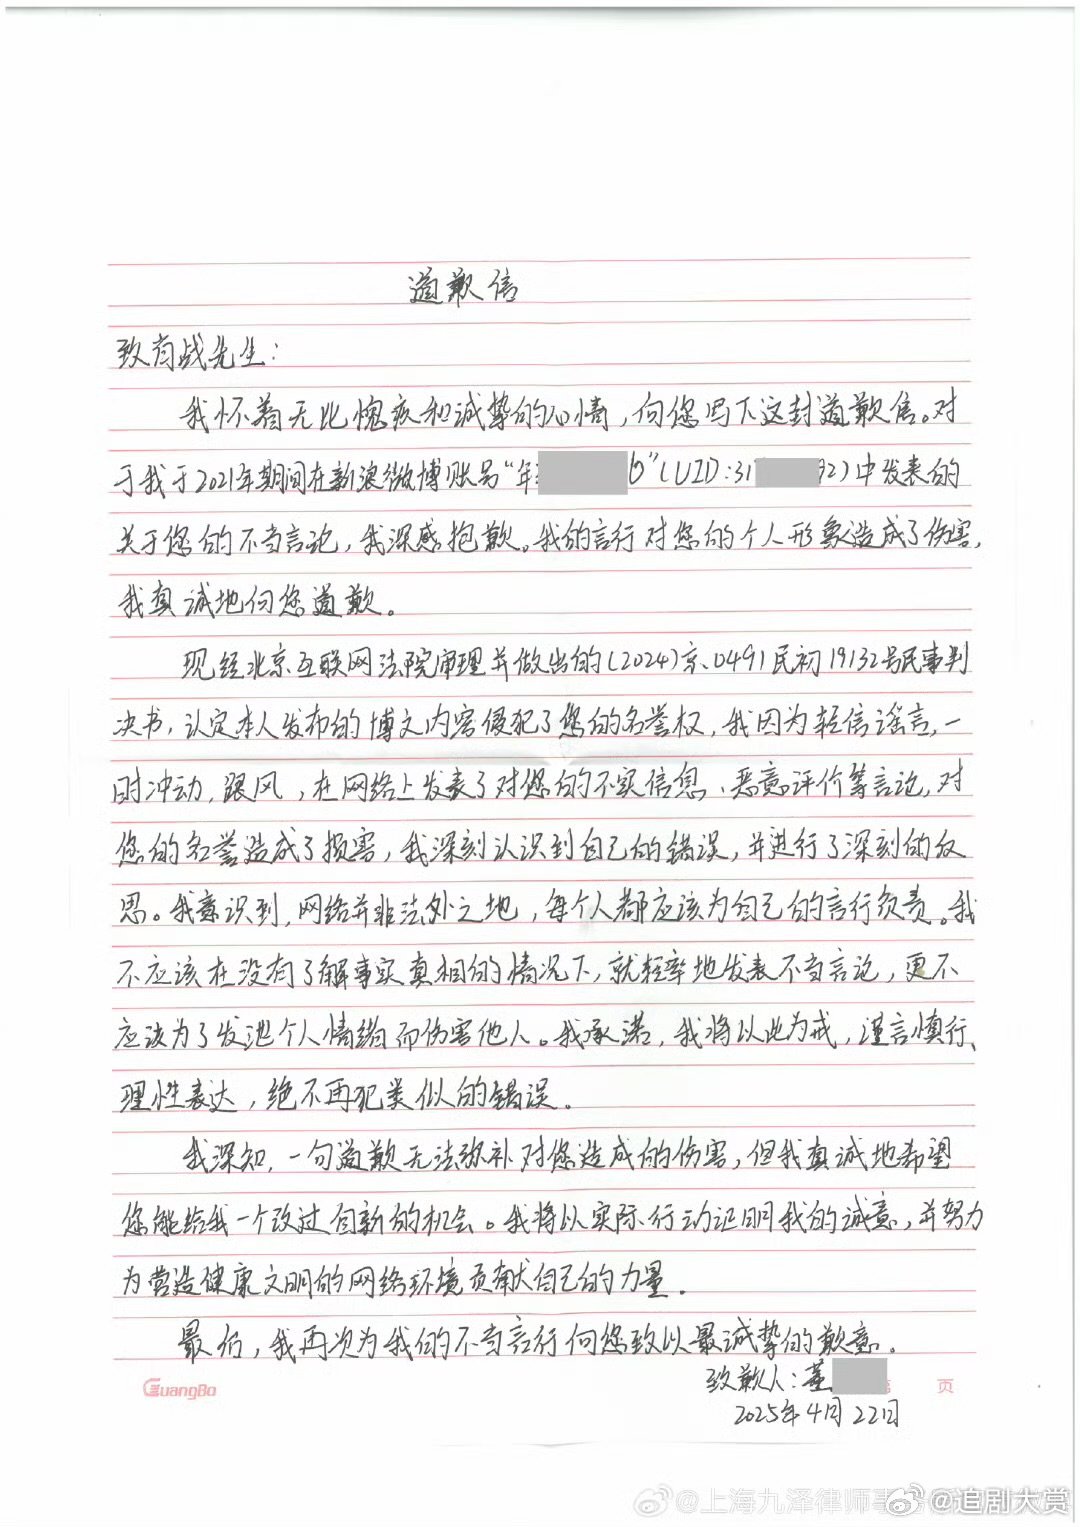 道歉信
致肖战先生：
我怀着无比愧疚和诚挚的心情，向您写下这封道歉信。对
于我于2021年期间在新浪微博账号“年”(UID:3192)中发表的
关于您的不当言论，我深感抱歉。我的言行对您的个人形象造成了伤害，
我真诚地向您道歉。
现经北京互联网法院审理并做出的(2024)京0491民初19132号民事判
决书，认定本人发布的博文内容侵犯了您的名誉权，我因为轻信谣言，一
时冲动，跟风，在网络上发表了对您的不实信息、恶意评价等言论，对
您的名誉造成了损害，我深刻认识到自己的错误，并进行了深刻的反
思。我意识到，网络并非法外之地，每个人都应该为自己的言行负责。我
不应该在没有了解事实真相的情况下，就轻率地发表不当言论，更不
应该为了发泄个人情绪而伤害他人。我承诺，我将以此为戒，谨言慎行、
理性表达，绝不再犯类似的错误。
我深知，一句道歉无法弥补对您造成的伤害，但我真诚地希望
您能给我一个改过自新的机会。我将以实际行动证明我的诚意，并努力
为营造健康文明的网络环境贡献自己的力量。
最后，我再次为我的不当言行向您致以最诚挚的歉意。
致歉人：董
GuangBo 页
2025年4月22日
@上海九泽律师事 @追剧大赏